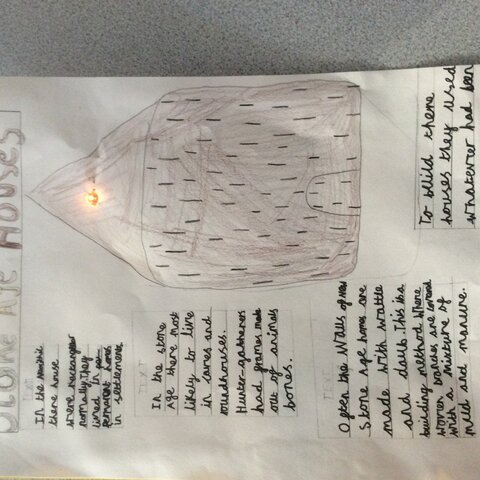 Stone Age Houses
In the Neolithic
there house
where rectangular
normally they
lived in
permanent homes
in settlements
TEXT
In the Stone
Age there most
likely to live
in caves and
roundhouses.
Hunter-gatherers
had frames made
out of animals
bones.
TEXT
Often the walls of New
Stone Age homes are
made with wattle
and daub. This is a
building method where
woven branches are covered
with a mixture of
mud and manure.
To build theme
houses they used
whatever had been